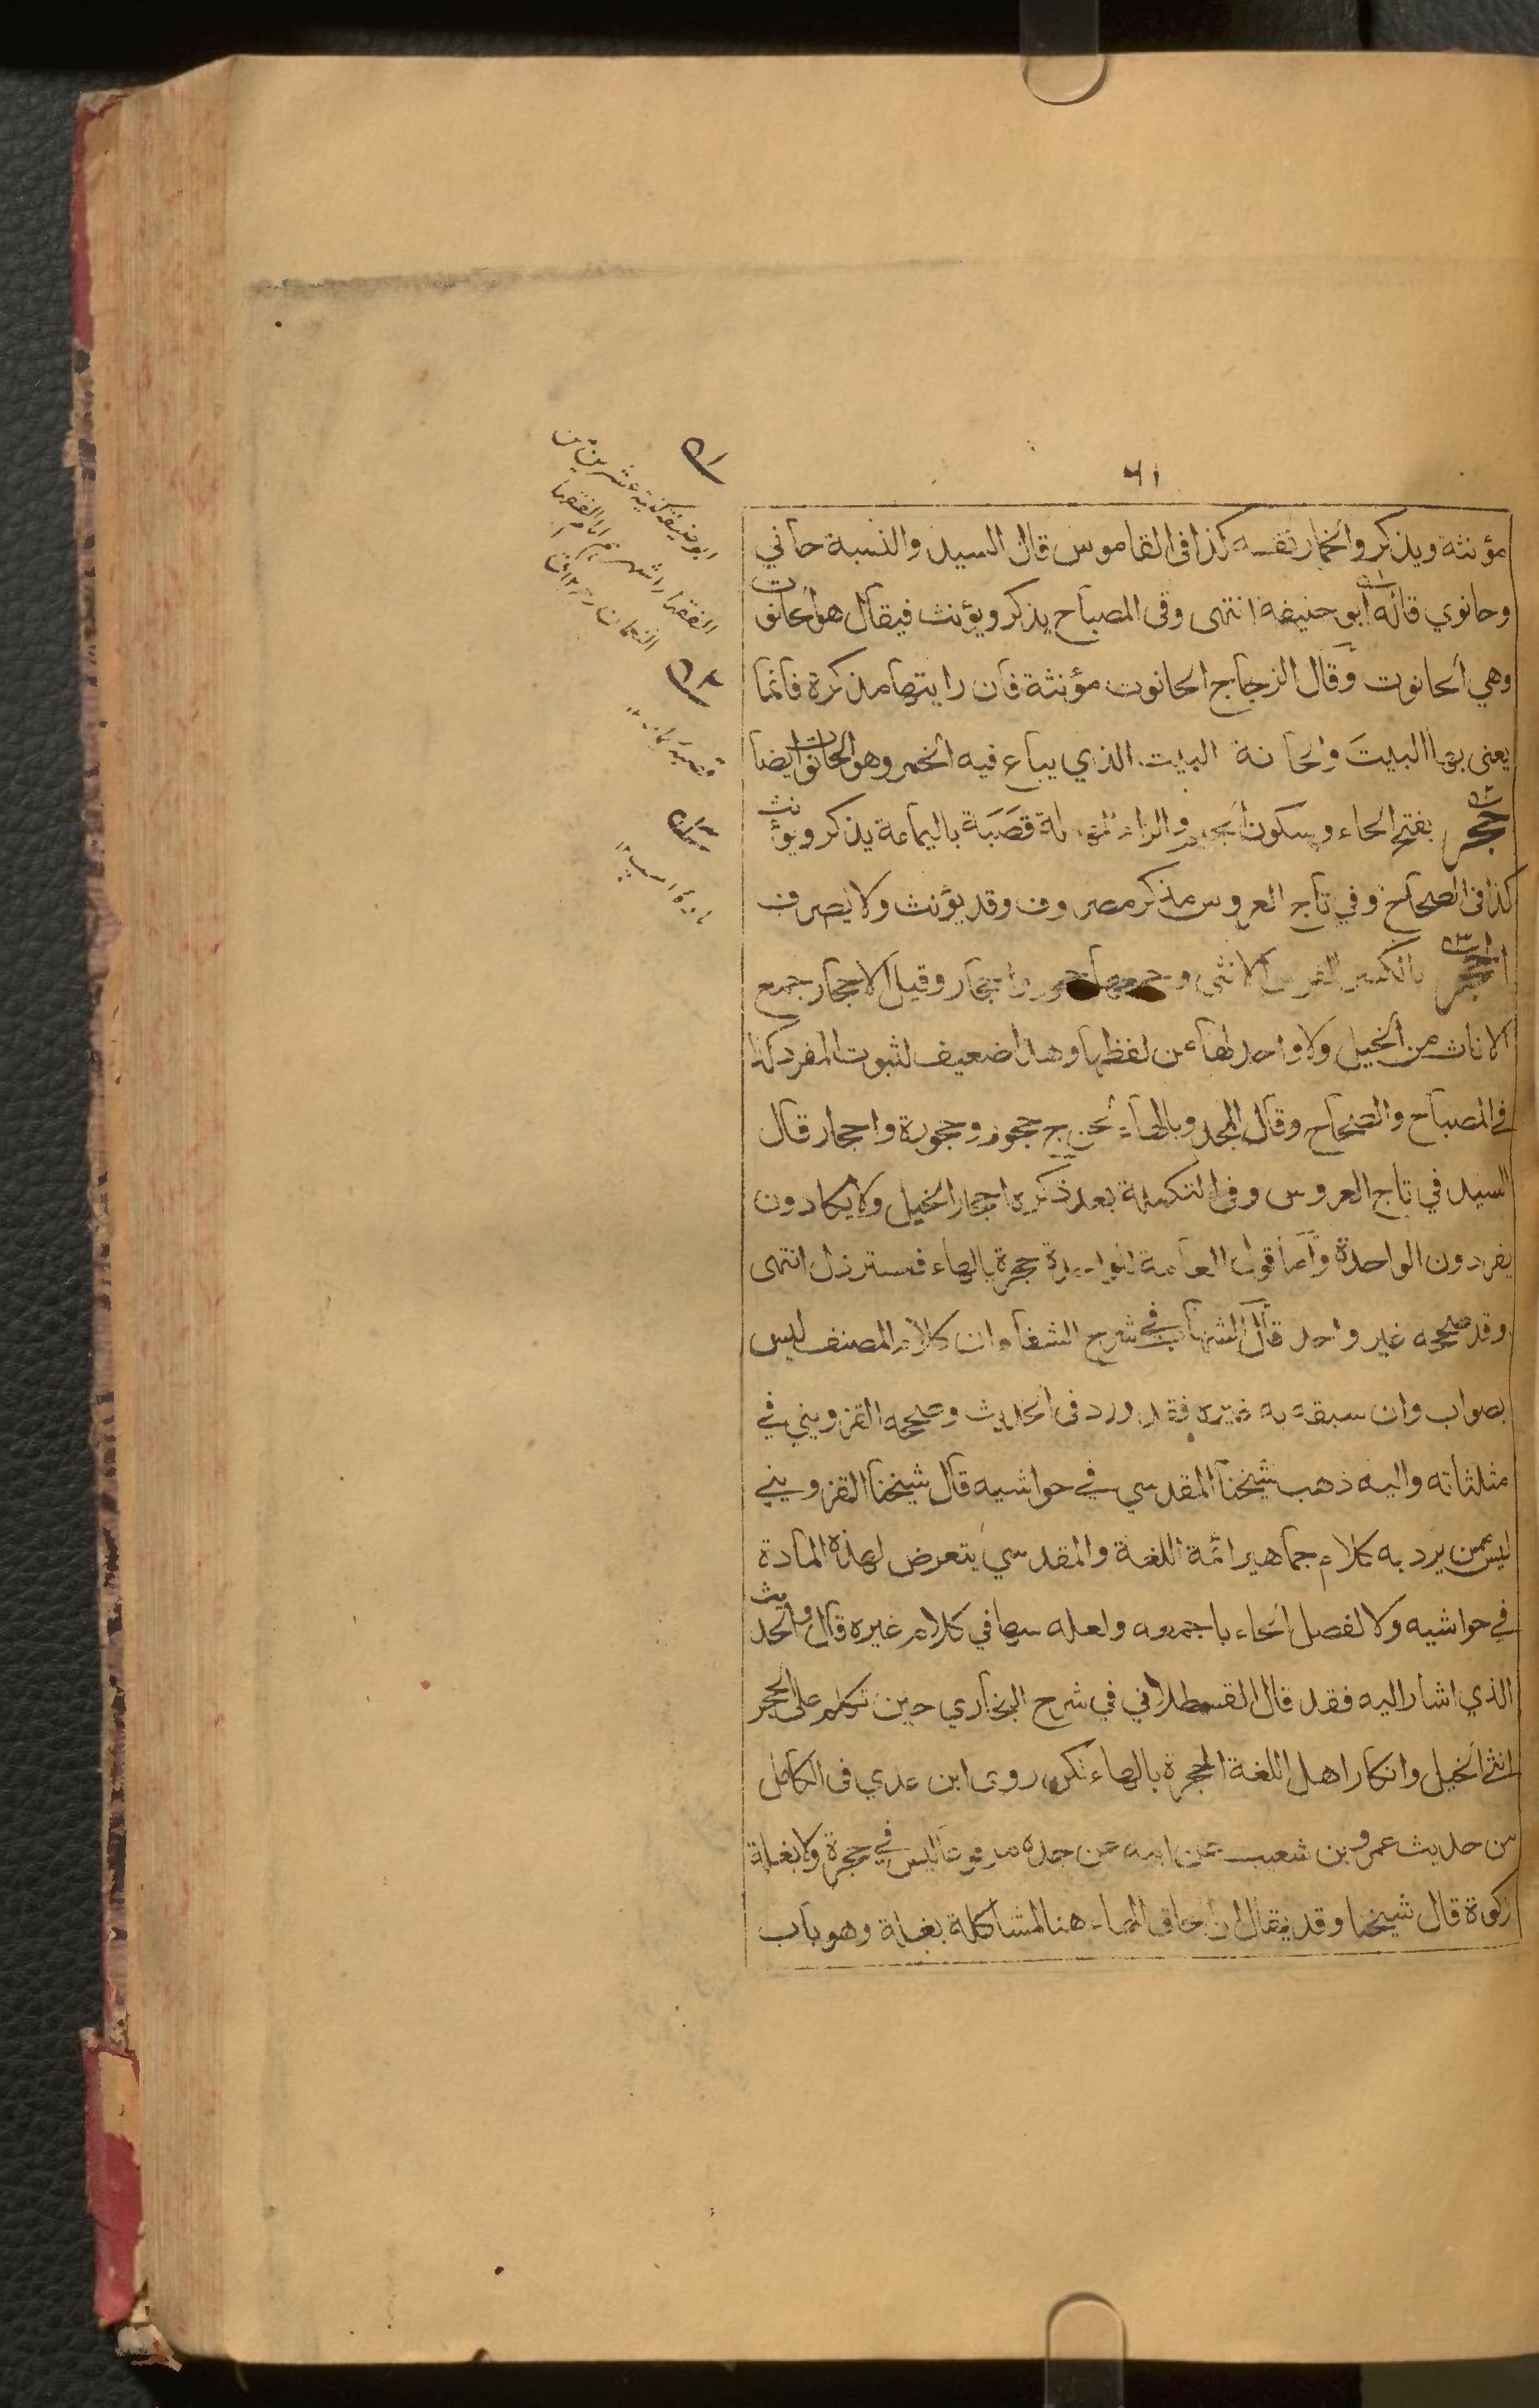 ٦١
مؤنثة ويذكر والخمار نفسه كذا فى القاموس قال السيد والنسبة حاني
وحانوي قاله ابو حنيفة انتهى وفى المصباح يذكر ويؤنث فيقال هو الحانوت
وهي الحانوت وقال الزجاج الحانوت مؤنثة فان رايتها مذكرة فانما
يعنى بها البيت والحانة البيت الذي يباع فيه الخمر وهو الحانوت ايضا
حجر بفتح الحاء وسكون الجيم والراء المهملة قصبة باليمامة يذكر ويؤنث
كذا فى الصحاح وفي تاج العروس مذكر مصروف وقد يؤنث ولا يصرف
الحجر بالكسر الفرس الانثى وجمعها حجور واحجار وقيل الاحجار جمع
الاناث من الخيل ولا واحد لها من لفظها وهذا ضعيف لثبوت المفرد كذا
في المصباح والصحاح وقال المجد وبالهاء لحن ج حجور وحجورة واحجار قال
السيد في تاج العروس وفى التكملة بعد ذكره احجار الخيل ولا يكادون
يفردون الواحدة واما قول العامة للواحدة حجرة بالهاء فمسترذل انتهى
وقد صححه غير واحد قال الشهاب في شرح الشفاء ان كلام المصنف ليس
بصواب وان سبقه به غيره فقد ورد فى الحديث وصححه القزويني في
مثلثاته واليه ذهب شيخنا المقدسي في حواشيه قال شيخنا القزويني
ليس ممن يرد به كلام جماهير ائمة اللغة والمقدسي يتعرض لهذه المادة
في حواشيه ولا لفصل الحاء باجمعه ولعله سها في كلام غيره قال والحديث
الذي اشار اليه فقد قال القسطلاني في شرح البخاري حين تكلم على الحجر
انثى الخيل وانكار اهل اللغة الحجرة بالهاء لكن روى ابن عدي فى الكامل
من حديث عمرو بن شعيب عن ابيه عن جده مرفوعا ليس في حجرة ولا بغلة
زكوة قال شيخنا وقد يقال ان الحاق الهاء هنا لمشاكلة بغلة وهو باب